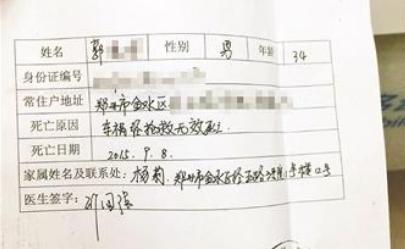 姓名 郭 性别 男 年龄 34
身份证编号
常住户地址 郑州市金水区
死亡原因 车祸经抢救无效死亡
死亡日期 2015.9.8.
家属姓名及联系处: 杨菊. 郑州市金水区经五路 号楼12号
医生签字: